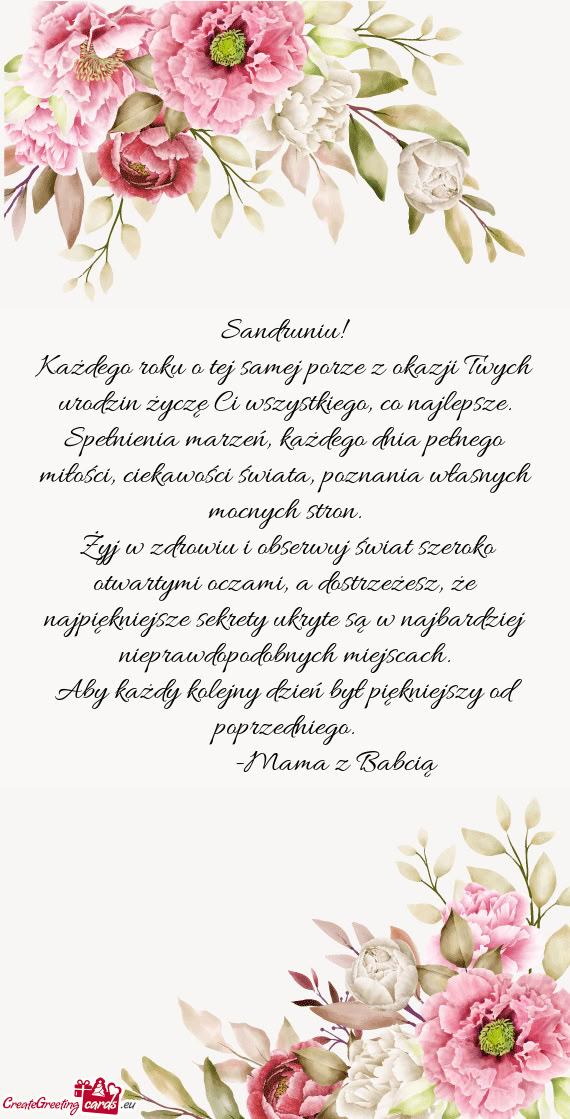 Sandruniu!
Każdego roku o tej samej porze z okazji Twych
urodzin życzę Ci wszystkiego, co najlepsze.
Spełnienia marzeń, każdego dnia pełnego
miłości, ciekawości świata, poznania własnych
mocnych stron.
Żyj w zdrowiu i obserwuj świat szeroko
otwartymi oczami, a dostrzeżesz, że
najpiękniejsze sekrety ukryte są w najbardziej
nieprawdopodobnych miejscach.
Aby każdy kolejny dzień był piękniejszy od
poprzedniego.
-Mama z Babcią
CreateGreeting cards .eu